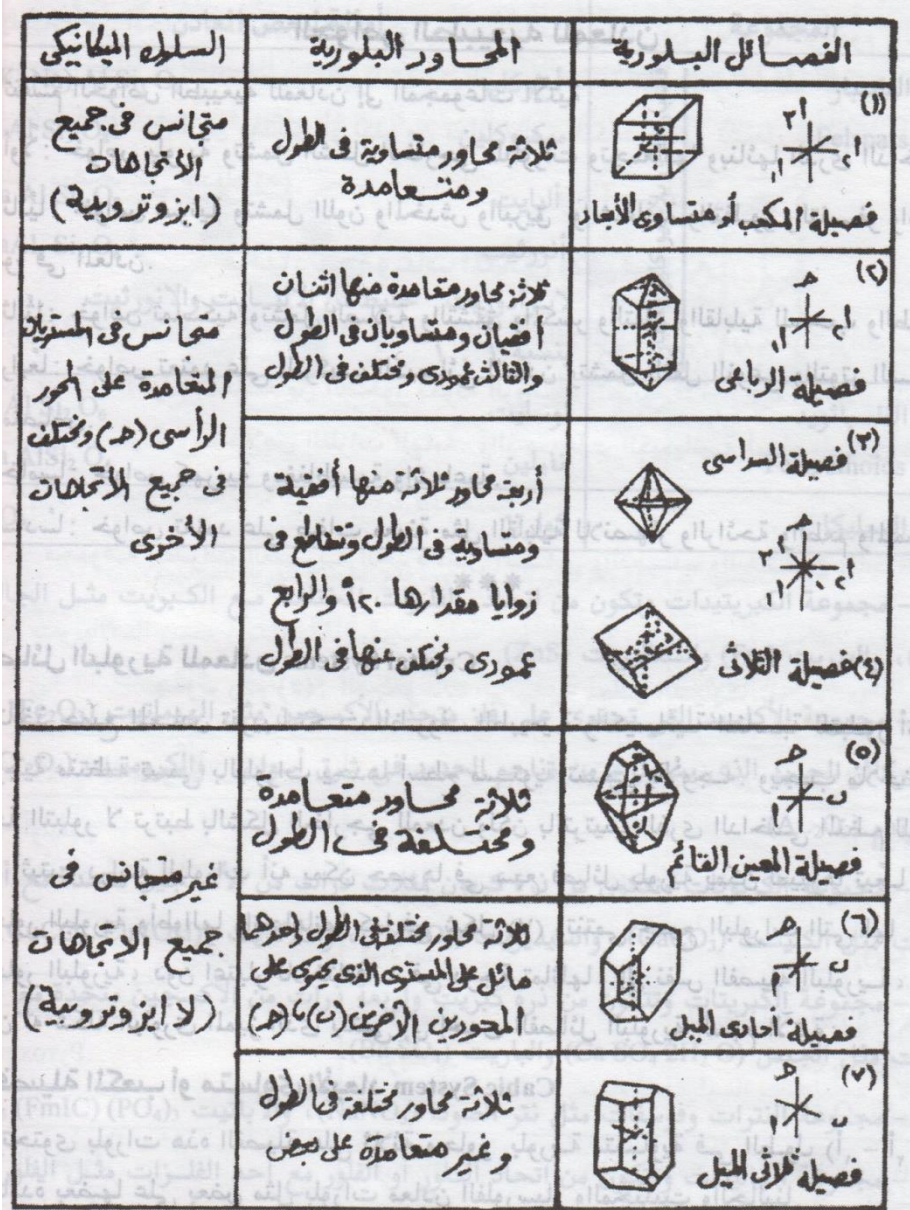 الفصائل البلورية
المحاور البلورية
السلوك الميكانيكى
(١)
أ٣
أ٢
أ١
فصيلة المكعب أو متساوى الأبعاد
ثلاثة محاور متساوية فى الطول
ومتعامدة
متجانس فى جميع
الاتجاهات
(ايزوتروبية)
(٢)
حـ
أ٢
أ١
فصيلة الرباعى
ثلاثة محاور متعامدة منها اثنان
أفقيان ومتساويان فى الطول
والثالث عمودى ومختلف فى الطول
متجانس فى المستويات
المتعامدة على المحور
الرأسى (حـ) ومختلف
فى جميع الأتجاهات
الأخرى
(٣) فصيلة السداسى
حـ
أ٣
أ٢
أ١
(٤) فصيلة الثلاثى
أربعة محاور ثلاثة منها أفقية
ومتساوية فى الطول وتتقاطع فى
زوايا مقدارها ١٢٠° والرابع
عمودى ومختلف عنها فى الطول
(٥)
حـ
ب
أ
فصيلة المعين القائم
ثلاثة محاور متعامدة
ومختلفة فى الطول
غير متجانس فى
جميع الاتجاهات
(لا ايزوتروبية)
(٦)
حـ
ب
أ
فصيلة أحادى الميل
ثلاثة محاور مختلفة فى الطول أحدها
مائل على المستوى الذى يحوى على
المحورين الآخرين (ب)، (حـ)
(٧)
حـ
ب
أ
فصيلة ثلاثى الميل
ثلاثة محاور مختلفة فى الطول
وغير متعامدة على بعض